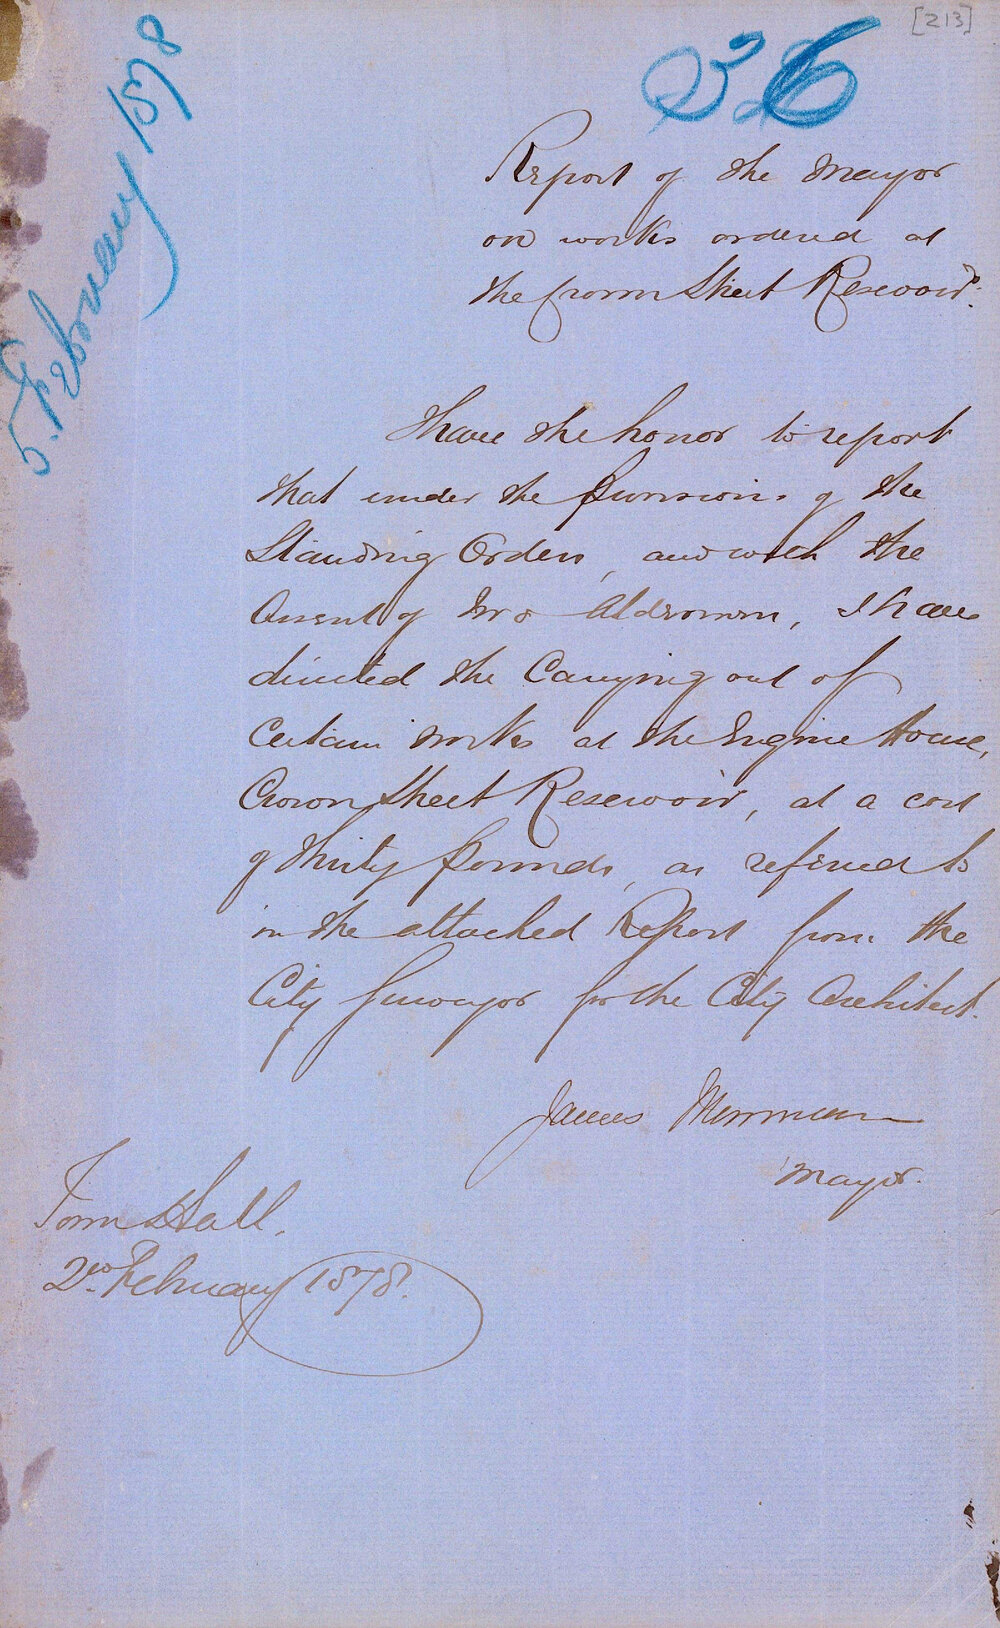 [213]
36
5. February 1878
Report of the Mayor
on works ordered at
the Crown Street Reservoir.
I have the honor to report
that under the provisions of the
Standing Orders, and with the
Assent of two Aldermen, I have
directed the Carrying out of
Certain works at the Engine House,
Crown Street Reservoir, at a cost
of thirty pounds, as referred to
in the attached Report from the
City Surveyor for the City Architect.
James Merriman
Mayor.
Town Hall.
2nd. February 1878.